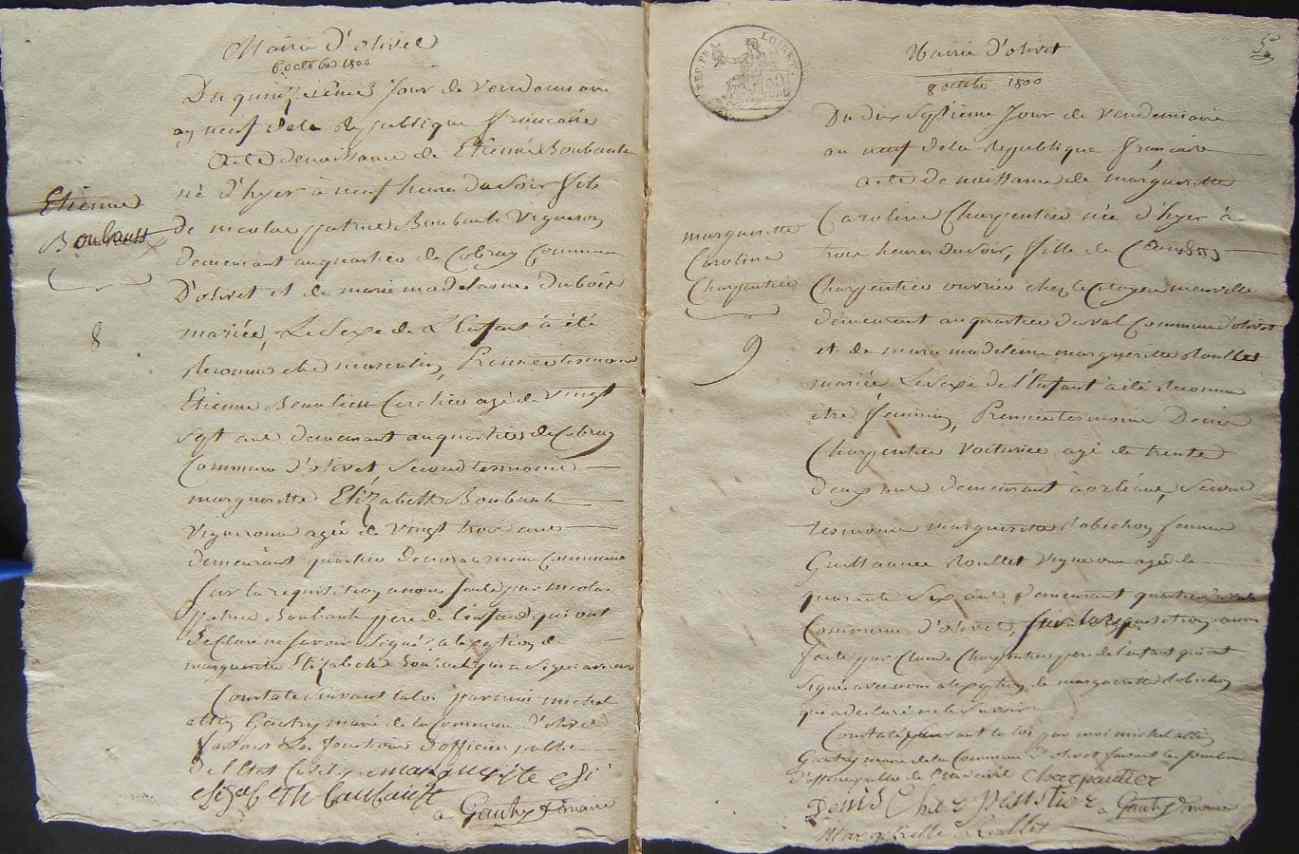 Mairie d'olivet
6 octobre 1800
Du quinzieme Jour de Vendemiaire
an neuf de la Republique francaise
acte de naissance de Etienne Boubault
né d'hyer à neuf heures du soir fils
de nicolas patrice Boubault Vigneron
demeurant au quartier de Cobray Commune
D'olivet et de marie madelaine dubois
mariée, Le Sexe de L'Enfant à été
Reconnu etre masculin, Premier temoin
Etienne Cerclier agé de Vingt
sept ans demeurant au quartier de Cobray
Commune d'olivet Second temoin
margueritte Elizabeth Boubault
Vigneronne agée de Vingt trois ans
demeurant quartier Commune
sur la requisition a nous faite par nicolas
patrice Boubault pere de l'enfant qui ont
declare ne savoir signé a l'exeption de
margueritte Elizabeth Boubault qui a signé avec nous
Constaté suivant la loi par moi michel
Gautry maire de la Commune d'olivet
faisant Les fonctions d'officier public
De l'Etat Civil marguerite
elizabeth baubault
Gautry maire
Etienne
Boubault
8
REP. FRA.
Mairie d'olivet
8 octobre 1800
Du dix Septieme Jour de Vendemiaire
an neuf de la Republique francaise
acte de naissance de margueritte
Caroline Charpentier née d'hyer à
trois heures du soir, fille de Claude
Charpentier ouvrier chez le Citoyen
demeurant au quartier du val Commune d'olivet
et de marie madeleine margueritte Roullet
mariée Le Sexe de l'Enfant a été Reconnu
etre feminin, Premier temoin Denis
Charpentier Voiturier agé de trente
deux ans demeurant a orleans, Second
temoin margueritte Robichon femme
Guillaume Roullet Vigneronne agée de
quarante Six ans demeurant quartier
Commune d'olivet, sur la requisition a nous
faite par Claude Charpentier pere de l'enfant qui ont
signé avec nous a l'exeption de margueritte Robichon
qui a declaré ne le Savoir
Constaté suivant la loi par moi michel
Gautry maire de la Commune d'olivet faisant les fonctions
d'officier public de l'Etat Civil Charpantier
Denis Charpentier Gautry maire
Roullet
margueritte
Caroline
Charpentier
9